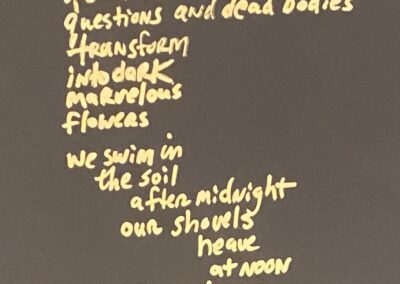 questions and dead bodies
transform
into dark
marvelous
flowers
we swim in
the soil
after midnight
our shovels
heave
at NOON